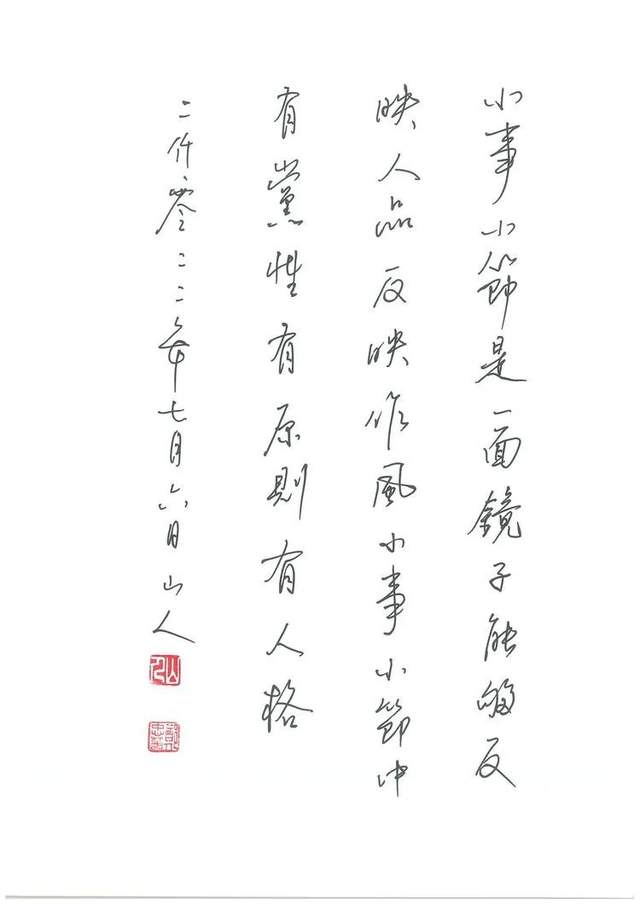 小事小節是一面鏡子能够反
映人品反映作風小事小節中
有黨性有原則有人格
二仟零二二年七月六日山人
山人